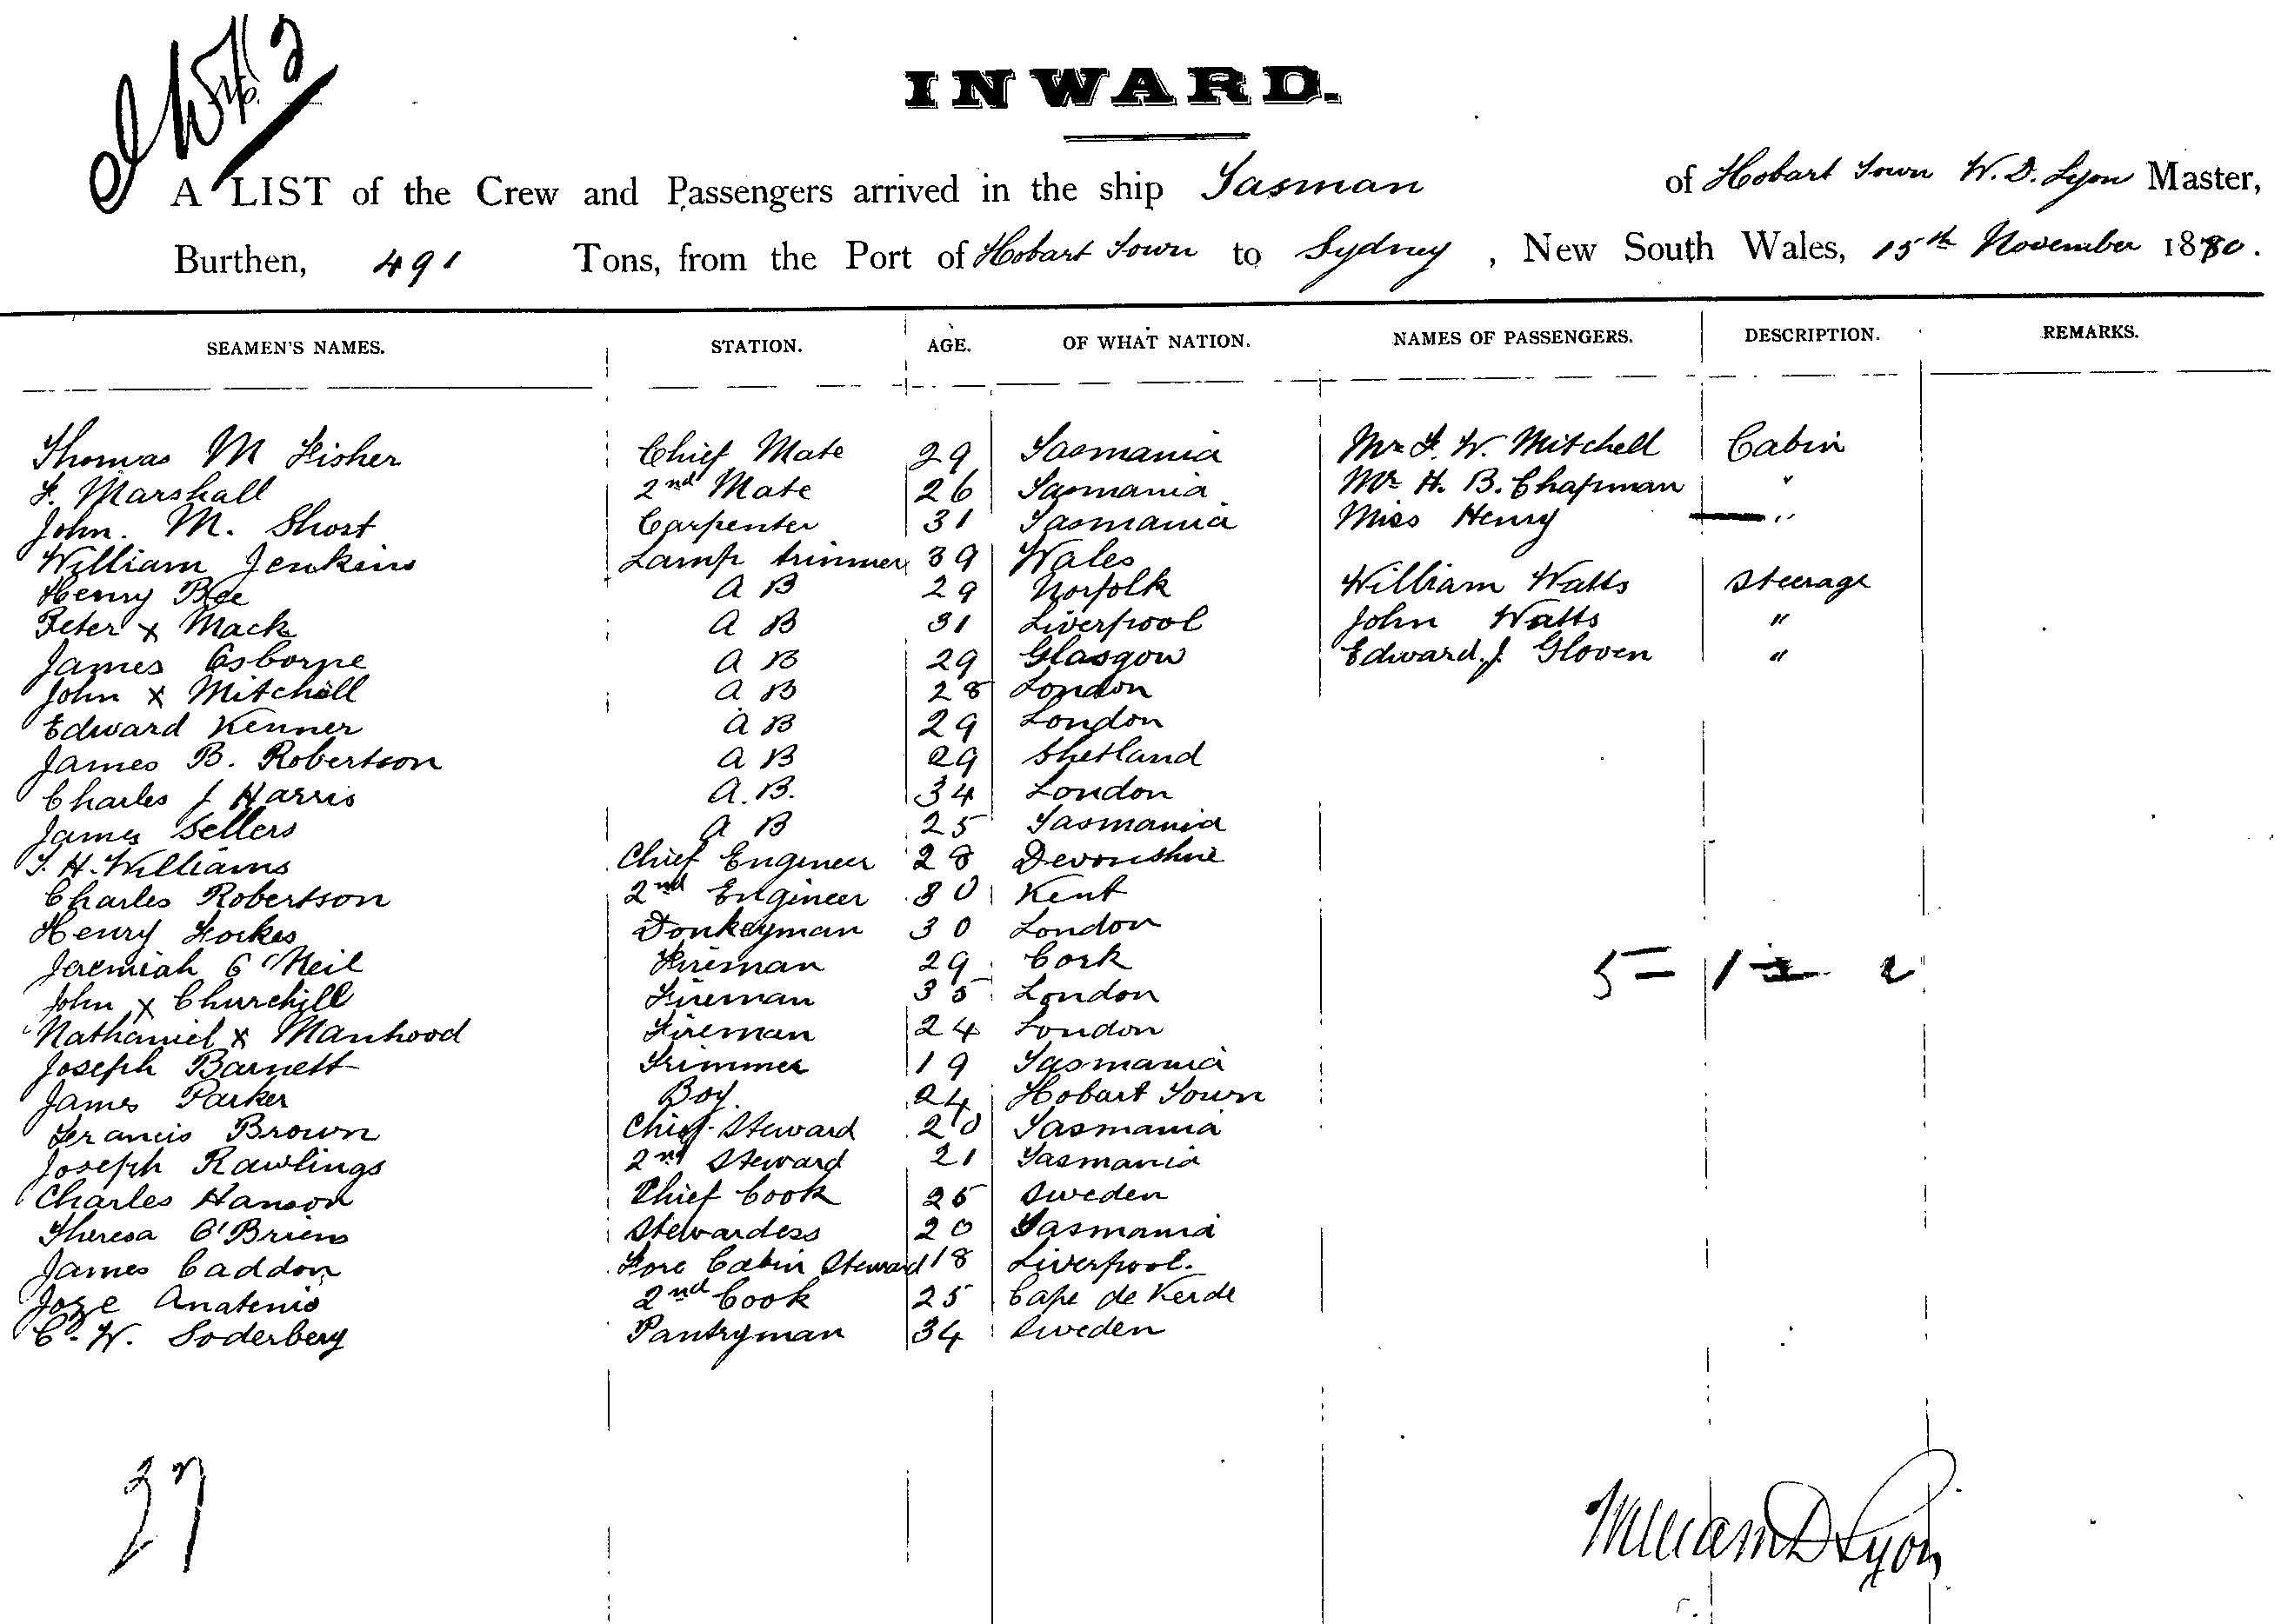 INWARD.
A LIST of the Crew and Passengers arrived in the ship Tasman of Hobart Town W. D. Lyon Master,
Burthen, 491 Tons, from the Port of Hobart Town to Sydney, New South Wales, 15th November 1880.
SEAMEN'S NAMES. STATION. AGE. OF WHAT NATION. NAMES OF PASSENGERS. DESCRIPTION. REMARKS.
Thomas M Fisher Chief Mate 29 Tasmania Mr F. W. Mitchell Cabin
F. Marshall 2nd Mate 26 Tasmania Mr H. B. Chapman "
John. M. Short Carpenter 31 Tasmania Miss Henry "
William Jenkins Lamp trimmer 39 Wales
Henry Bee A B 29 Norfolk William Watts Steerage
Peter x Mack A B 31 Liverpool John Watts "
James Osborne A B 29 Glasgow Edward. J. Gloven "
John x Mitchell A B 28 London
Edward Kenner A B 29 London
James B. Robertson A B 29 Shetland
Charles J Harris A. B. 34 London
James Sellers A B 25 Tasmania
T. H. Williams Chief Engineer 28 Devonshire
Charles Robertson 2nd Engineer 30 Kent
Henry Forkes Donkeyman 30 London
Jeremiah O'Neil Fireman 29 Cork 5 = 1 2
John x Churchill Fireman 35 London
Nathaniel x Manhood Fireman 24 London
Joseph Barnett Trimmer 19 Tasmania
James Parker Boy. 24 Hobart Town
Francis Brown Chief Steward 20 Tasmania
Joseph Rawlings 2nd Steward 21 Tasmania
Charles Hanson Chief Cook 25 Sweden
Theresa O'Briens Stewardess 20 Tasmania
James Caddon Fore Cabin Steward 18 Liverpool.
Joze Anatenio 2nd Cook 25 Cape de Verde
C. W. Soderberg Pantryman 34 Sweden
27
William D Lyon